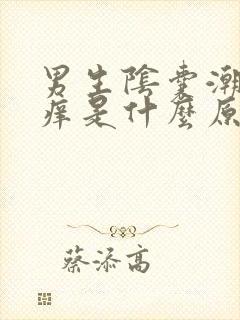 男生陰囊潮
痒是什麼原
蔡添高